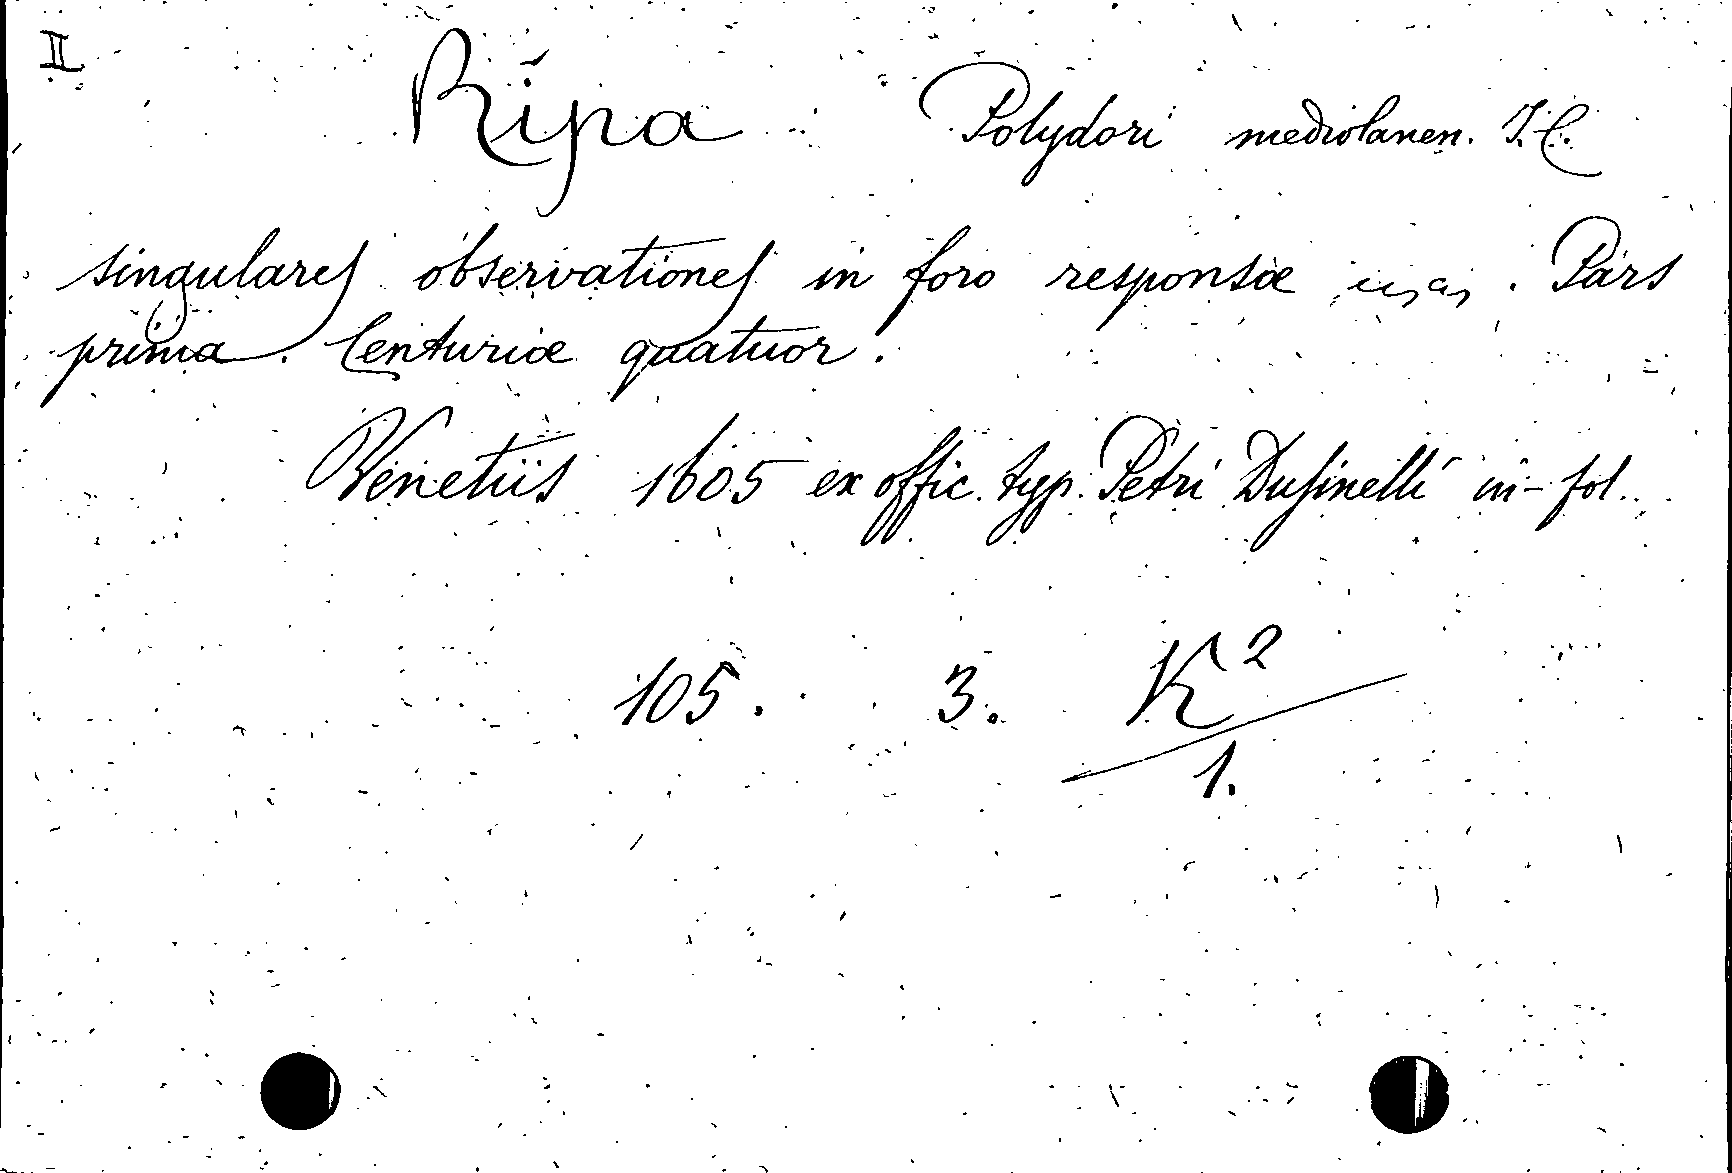 II
Ripa Polydori mediolanen. J. C.
singulares observationes in foro responsæ . Pars
prima. Centuriæ quatuor.
Venetiis 1605 ex offic. typ. Petri Dusinelli in-fol.
105. 3. K²
1.